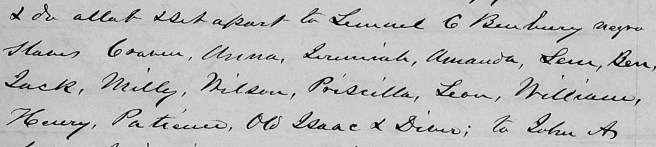 & do allot & set apart to Lemuel C Benbury negro
Slaves Craven, Anna, Jeremiah, Amanda, Lem, Ben,
Jack, Milly, Wilson, Priscilla, Leon, William,
Henry, Patience, Old Isaac & Diner; to John A